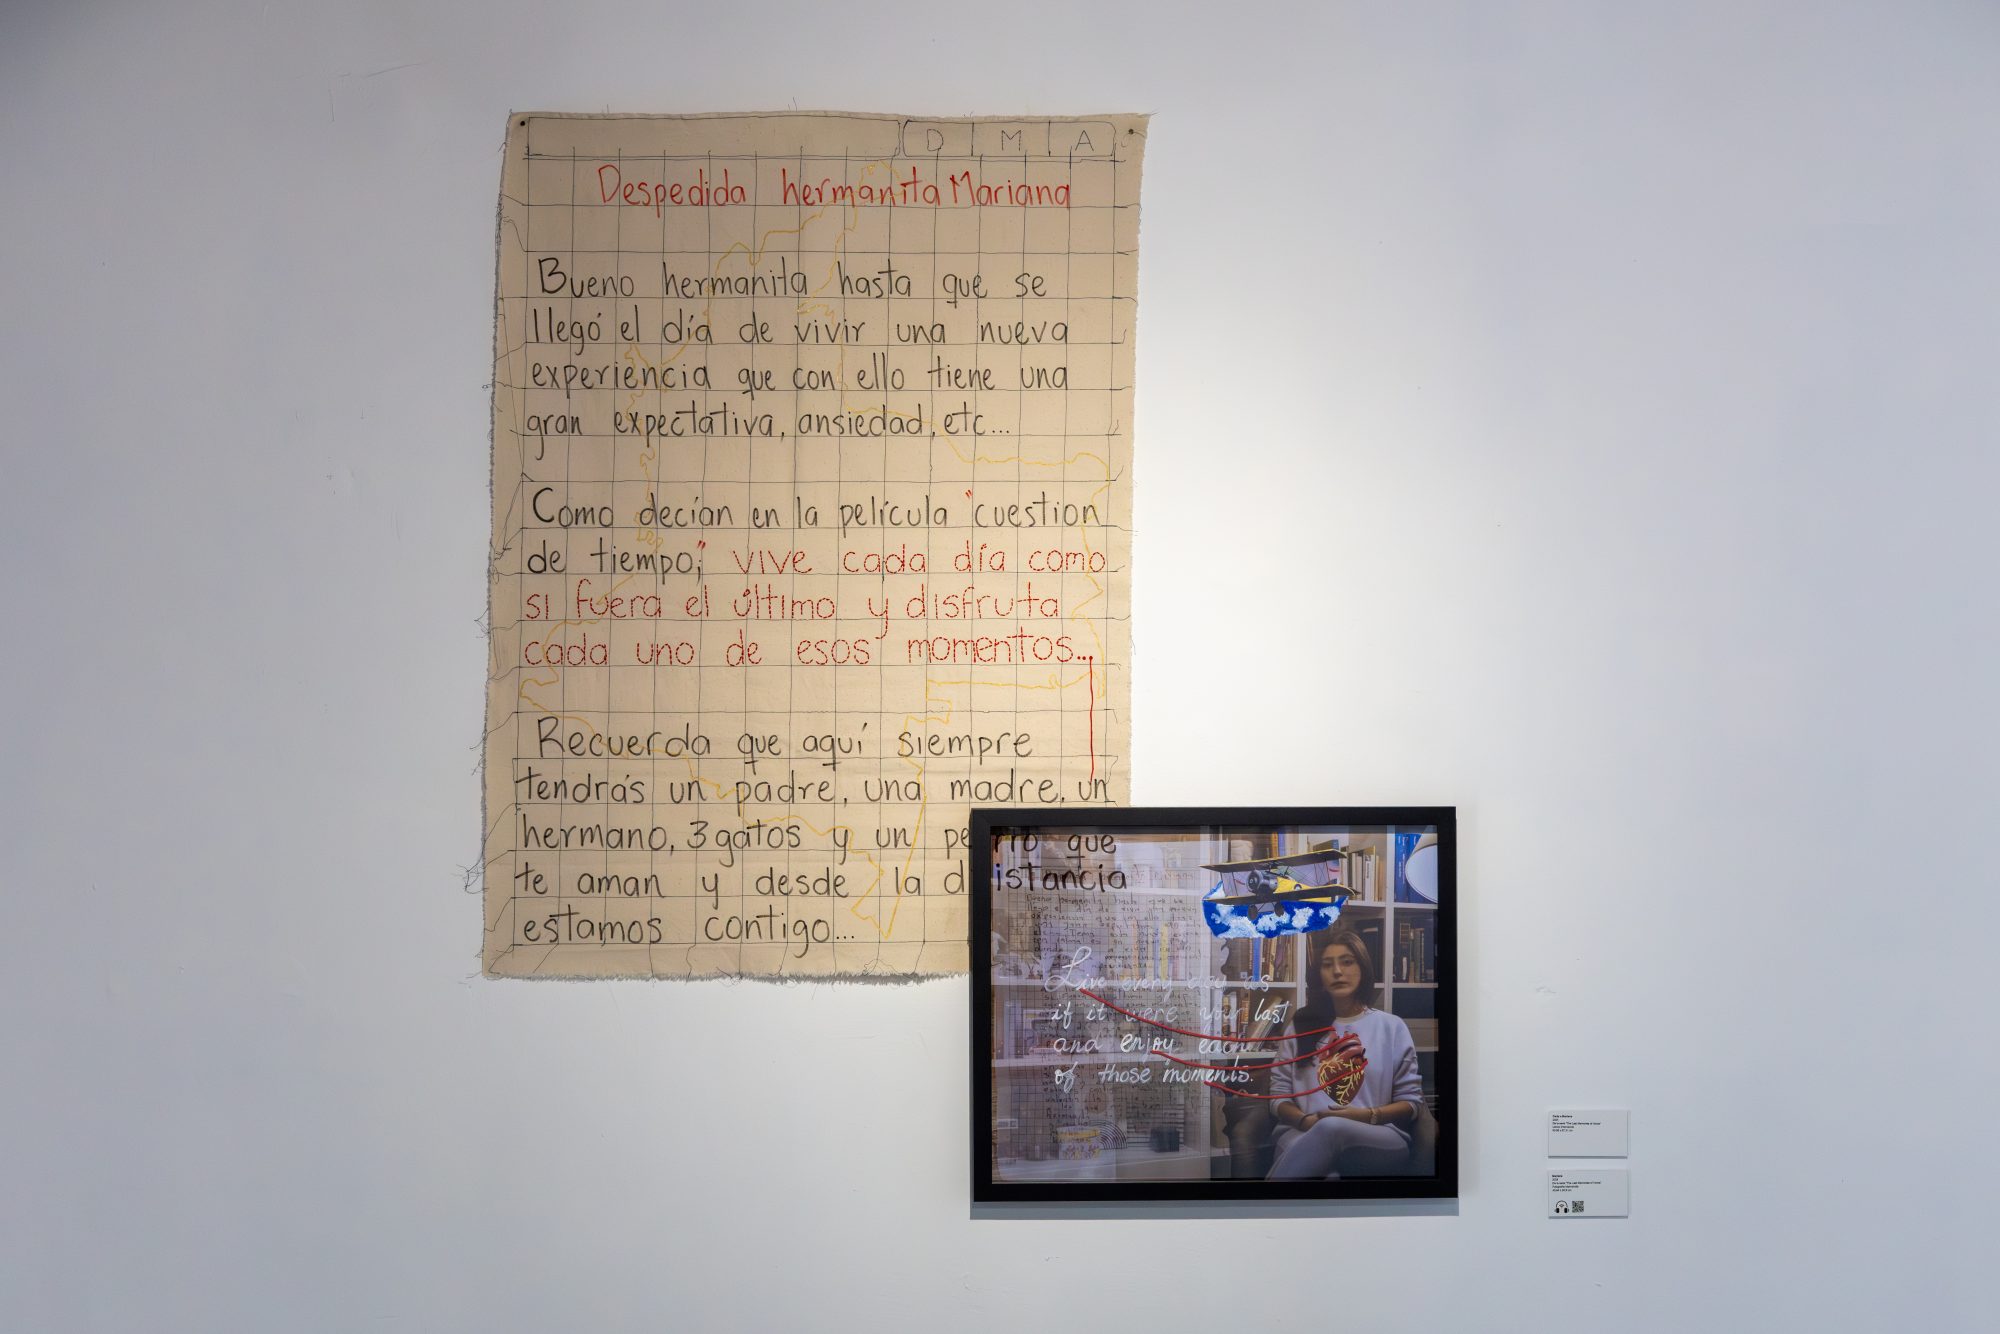 D M A
Despedida hermanita Mariana
Bueno hermanita hasta que se
llegó el día de vivir una nueva
experiencia que con ello tiene una
gran expectativa, ansiedad, etc...
Como decían en la película "cuestion
de tiempo;" vive cada día como
si fuera el último y disfruta
cada uno de esos momentos...
Recuerda que aquí siempre
tendrás un padre, una madre, un
hermano, 3 gatos y un perro que
te aman y desde la distancia
estamos contigo...
Live every day as
if it were your last
and enjoy each
of those moments.